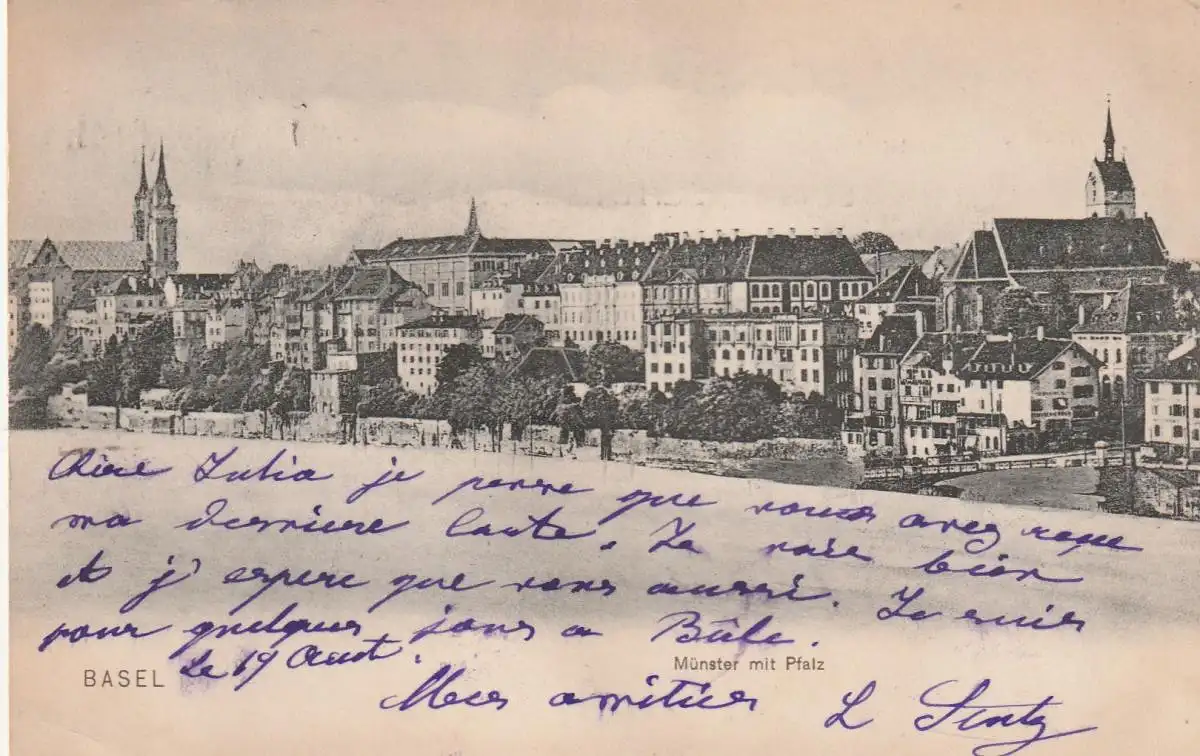 Chère Julia je pense que vous avez reçu
ma dernière carte. Je vais bien
et j'espère que vous aussi. Je suis
pour quelques jours a Bâle.
Le 19 Aout.
BASEL
Münster mit Pfalz
Mes amitiés L